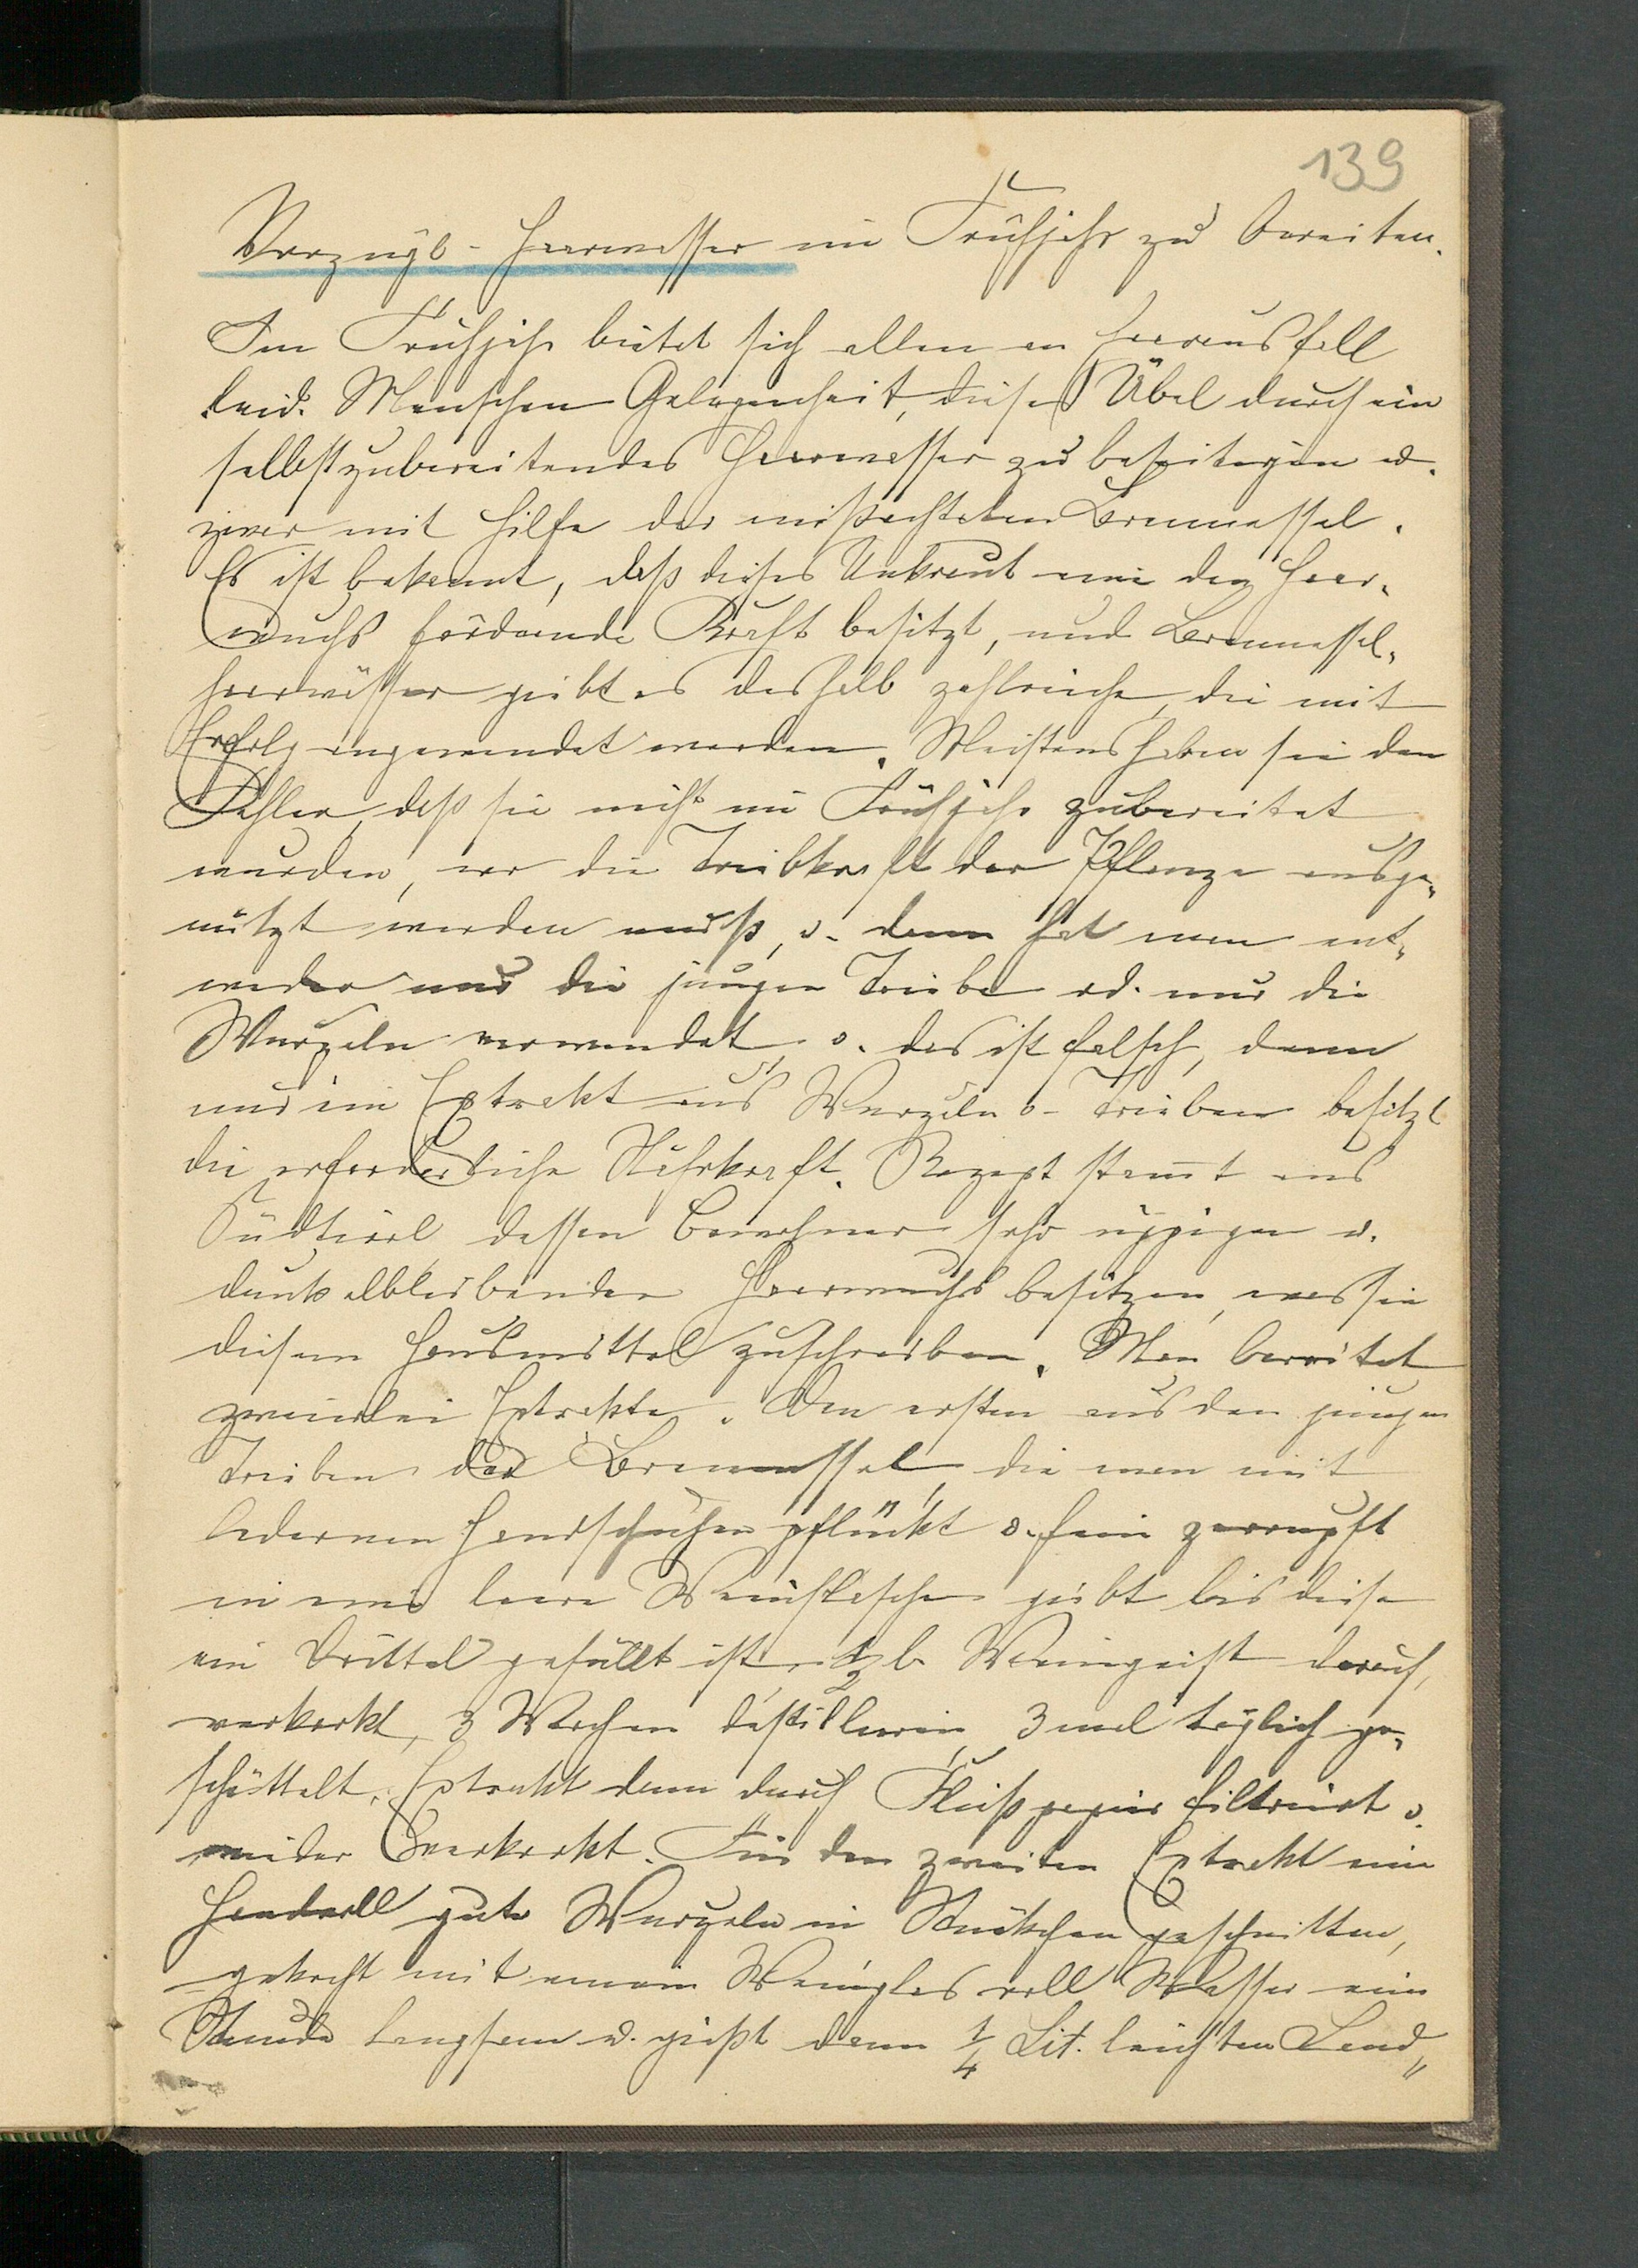 139
Vorzügl. Haarwasser im Frühjahr zu bereiten.
Im Frühjahr bietet sich allen an Haarausfall
leid. Menschen Gelegenheit, dieses Übel durch ein
selbstzubereitendes Haarwasser zu beseitigen u.
zwar mit Hilfe der mißachteten Brennessel.
Es ist bekannt, daß dieses Unkraut eine den Haar„
wuchs fördernde Kraft besitzt, und Brennessel„
haarwässer gibt es deshalb zahlreiche, die mit
Erfolg angewendet werden. Meistens haben sie den
Fehler, daß sie nicht im Frühjahr zubereitet
wurden, wo die Triebkraft der Pflanze ausge„
nützt werden muß, u. dann hat man ent„
weder nur die jungen Triebe od. nur die
Wurzeln verwendet u. das ist falsch, denn
nur ein Extrakt aus Wurzeln u. Trieben besitzt
die erforderliche Nährkraft. Rezept stam̅t aus
Südtirol dessen Bewohner sehr üppigen u.
dunkelbleibenden Haarwuchs besitzen, was sie
diesem Hausmittel zuschreiben. Man bereitet
zweierlei Extrakte. Den ersten aus den jungen
Trieben der Brennessel, die man mit
ledernen Handschuhen pflückt u. fein zerrupft
in eine leere Weinflasche gibt bis diese
ein Drittel gefüllt ist, 1/2 l. Weingeist darauf,
verkorkt, 3 Wochen destillieren, 3 mal täglich ge„
schüttelt, Extrakt dann durch Fließpapier filtriert u.
wieder verkorkt. Für den zweiten Extrakt eine
Handvoll gute Wurzeln in Stückchen geschnitten,
gekocht mit einem Weinglas voll Wasser eine
Stunde langsam u. gießt dann 1/4 Lit. leichten Land„